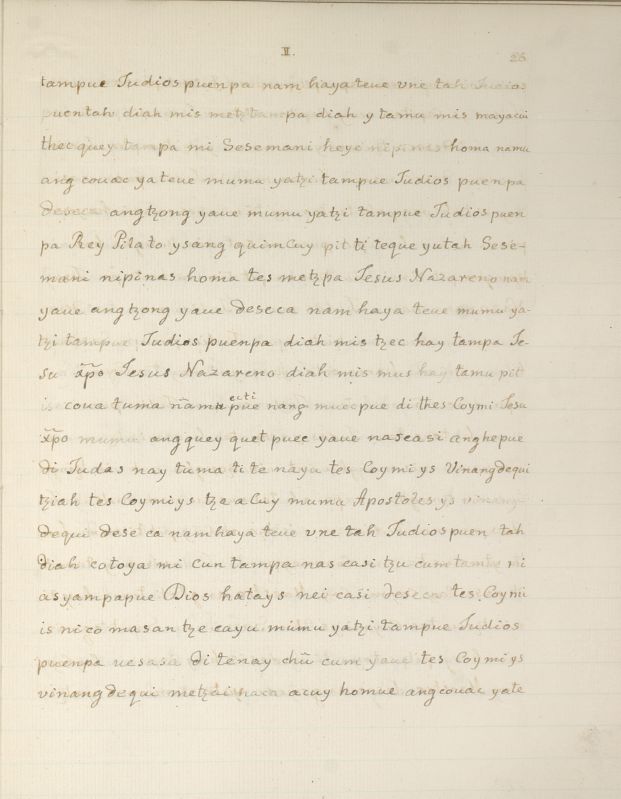 II.
26
tampue Judios puenpa nam haya teue vne tah Judios
puentah diah mis metztampa diah y tamu mis mayacui
thec quey tampa mi Sesemani heye nipinas homa namu
ang couac ya teue mumu yatzi tampue Judios puenpa
deseca angtzong yaue mumu yatzi tampue Judios puen
pa Rey Pilato ysang quimcuy pit ti teque yutah Sese-
mani nipinas homa tes metzpa Jesus Nazareno nam
yaue angtzong yaue deseca nam haya teue mumu ya-
tzi tampue Judios puenpa diah mis tzec hay tampa Je-
su xp̃o Jesus Nazareno diah mis mus hay tamu pit
is coua tuma ñama pue nang muecpue di thes Coymi Jesu
ecti
xp̃o mumu angquey quet puec yaue nascasi anghepue
di Judas nay tuma ti te nayu tes Coymi ys Vinangdequi
tziah tes Coymi ys tze a Cuy mumu Apostoles ys vinang-
dequi dese ca nam haya teue vne tah Judios puen tah
diah cotoya mi cun tampa nas casi tzu cum tamue ni
as yampapue Dios hatays nei casi deseca tes Coymi
is ni co masan tze cayu mumu yatzi tampue Judios
puenpa uesasa di tenay chũ cum yaue tes Coymi ys
vinang dequi metzai naca acuy homue angcouac yate